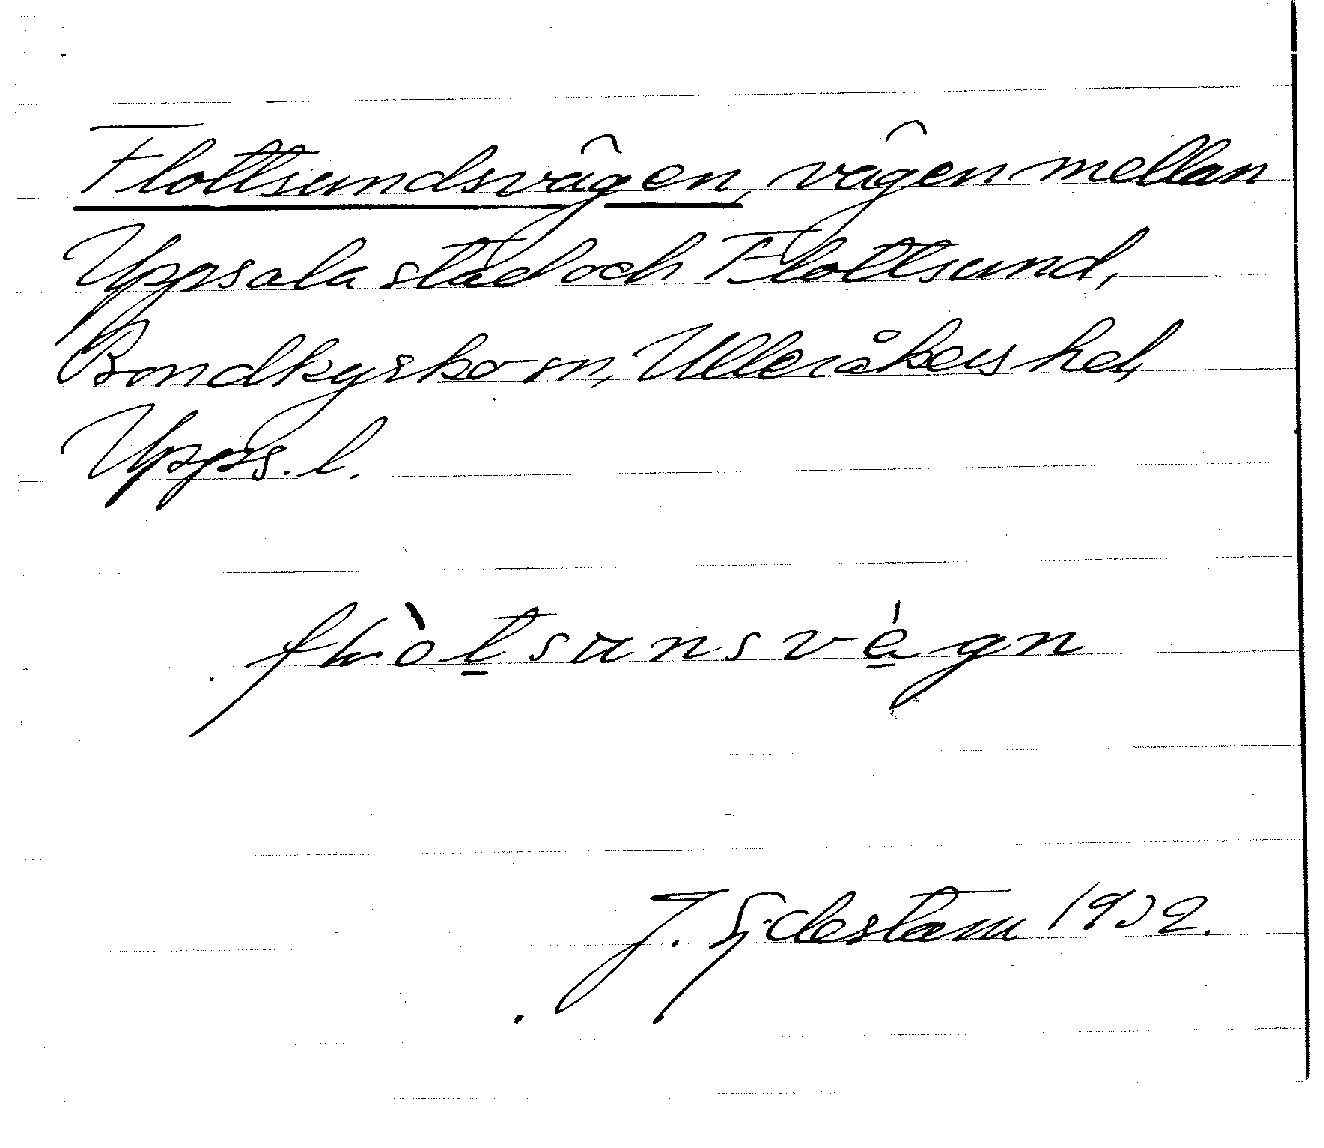 Flottsundsvägen, vägen mellan
Uppsala stad och Flottsund,
Bondkyrko sn, Ulleråkers hd,
Upps. l.
J. Sjdestam 1932.